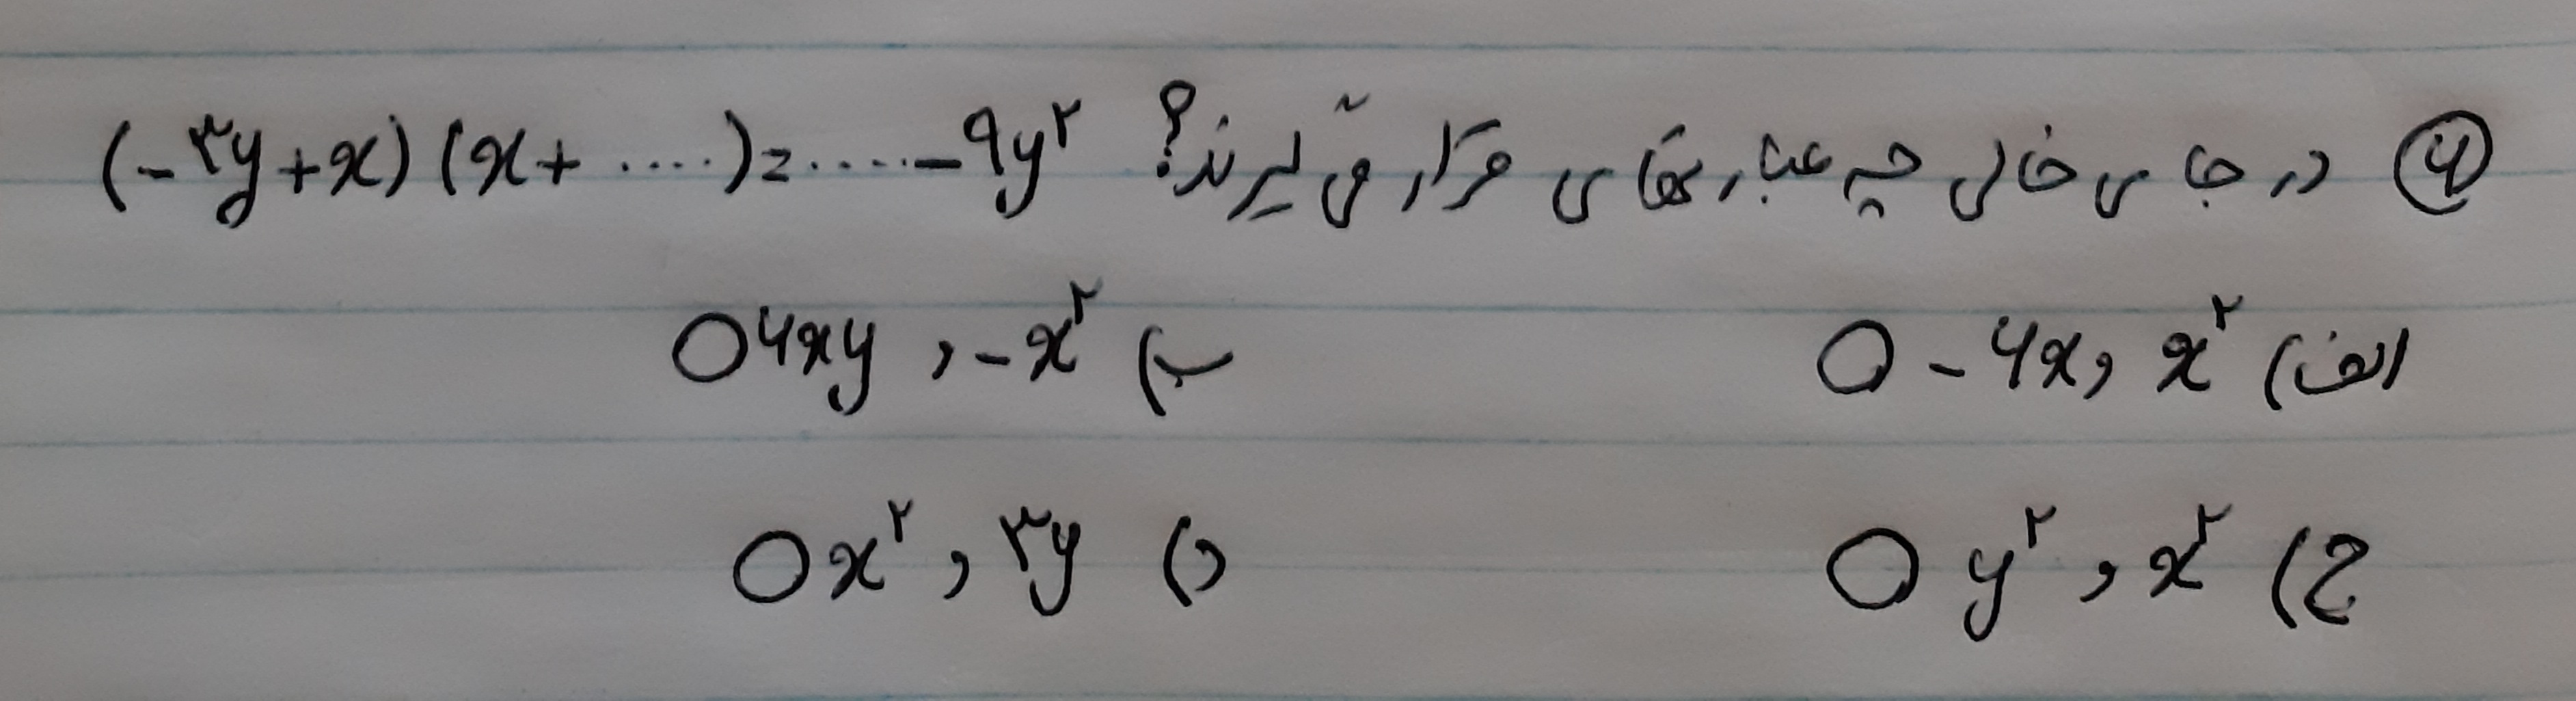 ۶) در جای خالی چه عبارتهای قرار می‌گیرند؟ (-۳y+x)(x+.....)=.....-۹y^۲
الف) x^۲ , -۶x ○ ب) -x^۲ , ۶xy ○
ج) x^۲ , y^۲ ○ د) ۳y , x^۲ ○